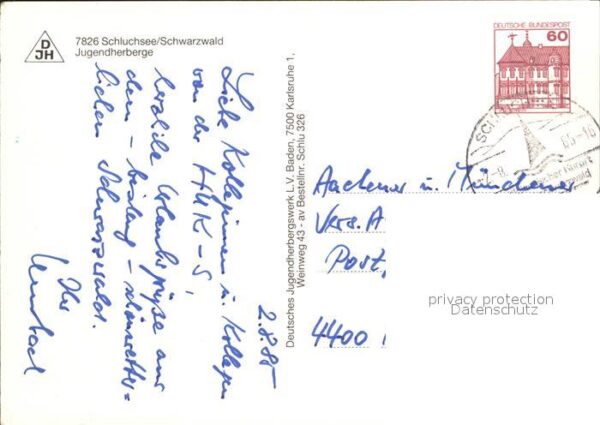 D
JH
7826 Schluchsee/Schwarzwald
Jugendherberge
2.8.85
Liebe Kolleginnen u. Kollegen
von der HUK-S,
herzliche Urlaubsgrüße aus
dem - bislang - schönwetter-
lichen Schwarzwald.
Ihr
Deutsches Jugendherbergswerk L.V. Baden, 7500 Karlsruhe 1,
Weinweg 43 - av Bestellnr. Schlu 326
DEUTSCHE BUNDESPOST
60
Aachener u. Münchener
Vers. A
Post,
4400
privacy protection
Datenschutz